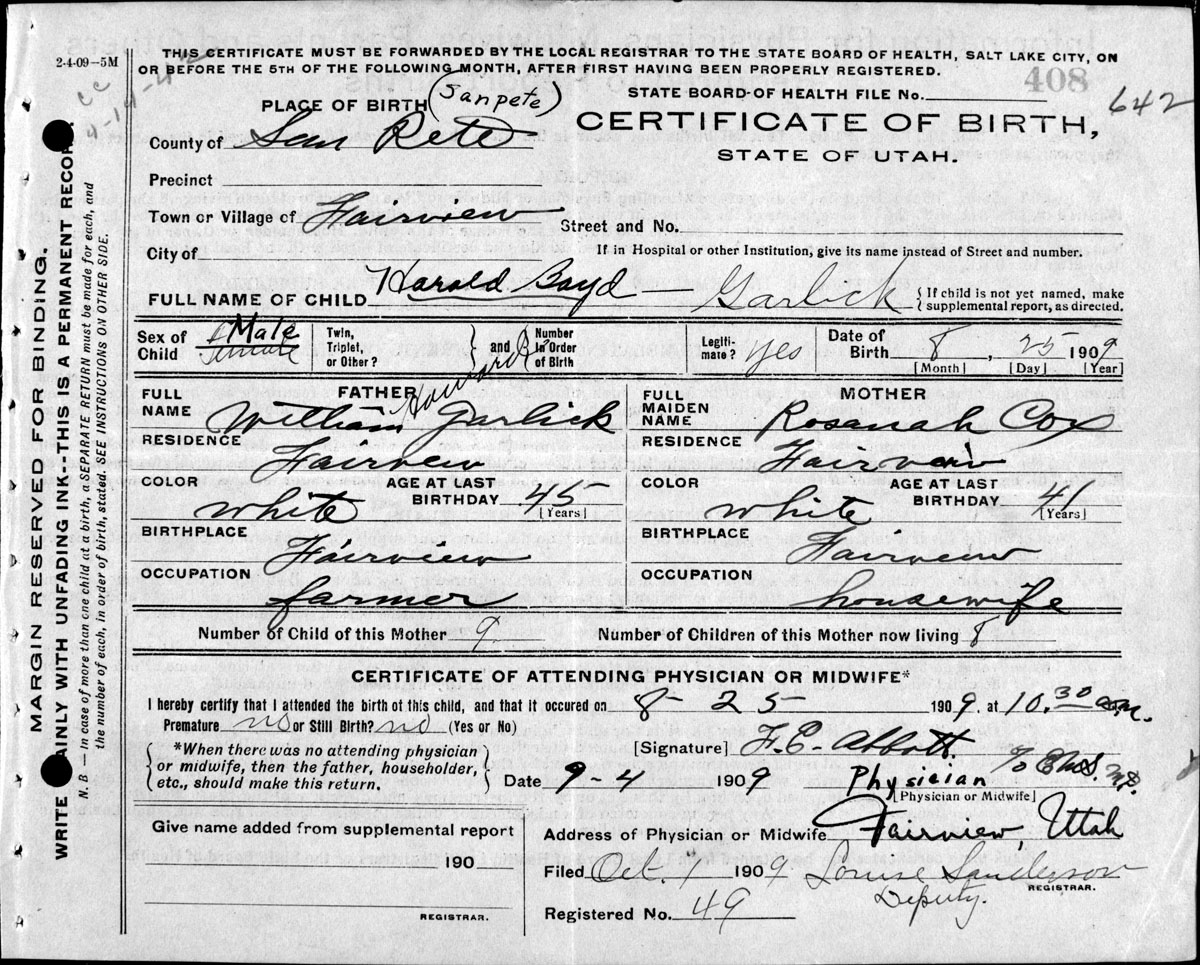 2-4-09—5M
THIS CERTIFICATE MUST BE FORWARDED BY THE LOCAL REGISTRAR TO THE STATE BOARD OF HEALTH, SALT LAKE CITY, ON
OR BEFORE THE 5TH OF THE FOLLOWING MONTH, AFTER FIRST HAVING BEEN PROPERLY REGISTERED.
408
STATE BOARD-OF HEALTH FILE No.
642
PLACE OF BIRTH (Sanpete)
CERTIFICATE OF BIRTH,
County of San Pete
STATE OF UTAH.
Precinct
Town or Village of Fairview
Street and No.
City of
If in Hospital or other Institution, give its name instead of Street and number.
FULL NAME OF CHILD Harold Boyd — Garlick {If child is not yet named, make
supplemental report, as directed.
Sex of Child Male Female
Twin, Triplet, or Other? } and { Number in Order of Birth
Legiti-mate? Yes
Date of Birth 8, 25 1909
[Month] [Day] [Year]
FATHER
FULL NAME William Howard Garlick
RESIDENCE Fairview
COLOR white AGE AT LAST BIRTHDAY 45
[Years]
BIRTHPLACE Fairview
OCCUPATION farmer
MOTHER
FULL MAIDEN NAME Rosanah Cox
RESIDENCE Fairview
COLOR white AGE AT LAST BIRTHDAY 41
[Years]
BIRTHPLACE Fairview
OCCUPATION housewife
Number of Child of this Mother 9. Number of Children of this Mother now living 8
CERTIFICATE OF ATTENDING PHYSICIAN OR MIDWIFE*
I hereby certify that I attended the birth of this child, and that it occured on 8 - 25 1909. at 10.30 a.m.
Premature no or Still Birth? no (Yes or No)
*When there was no attending physician
or midwife, then the father, householder,
etc., should make this return.
[Signature] F. E. Abbott.
Date 9-4 1909 Physician
[Physician or Midwife]
Give name added from supplemental report
190
REGISTRAR.
Address of Physician or Midwife Fairview, Utah
Filed Oct. 1 1909 Louise Sanderson
REGISTRAR.
Deputy.
Registered No. 49
MARGIN RESERVED FOR BINDING.
WRITE AINLY WITH UNFADING INK--THIS IS A PERMANENT RECOR
N. B. — In case of more than one child at a birth, a SEPARATE RETURN must be made for each, and
the number of each, in order of birth, stated. SEE INSTRUCTIONS ON OTHER SIDE.